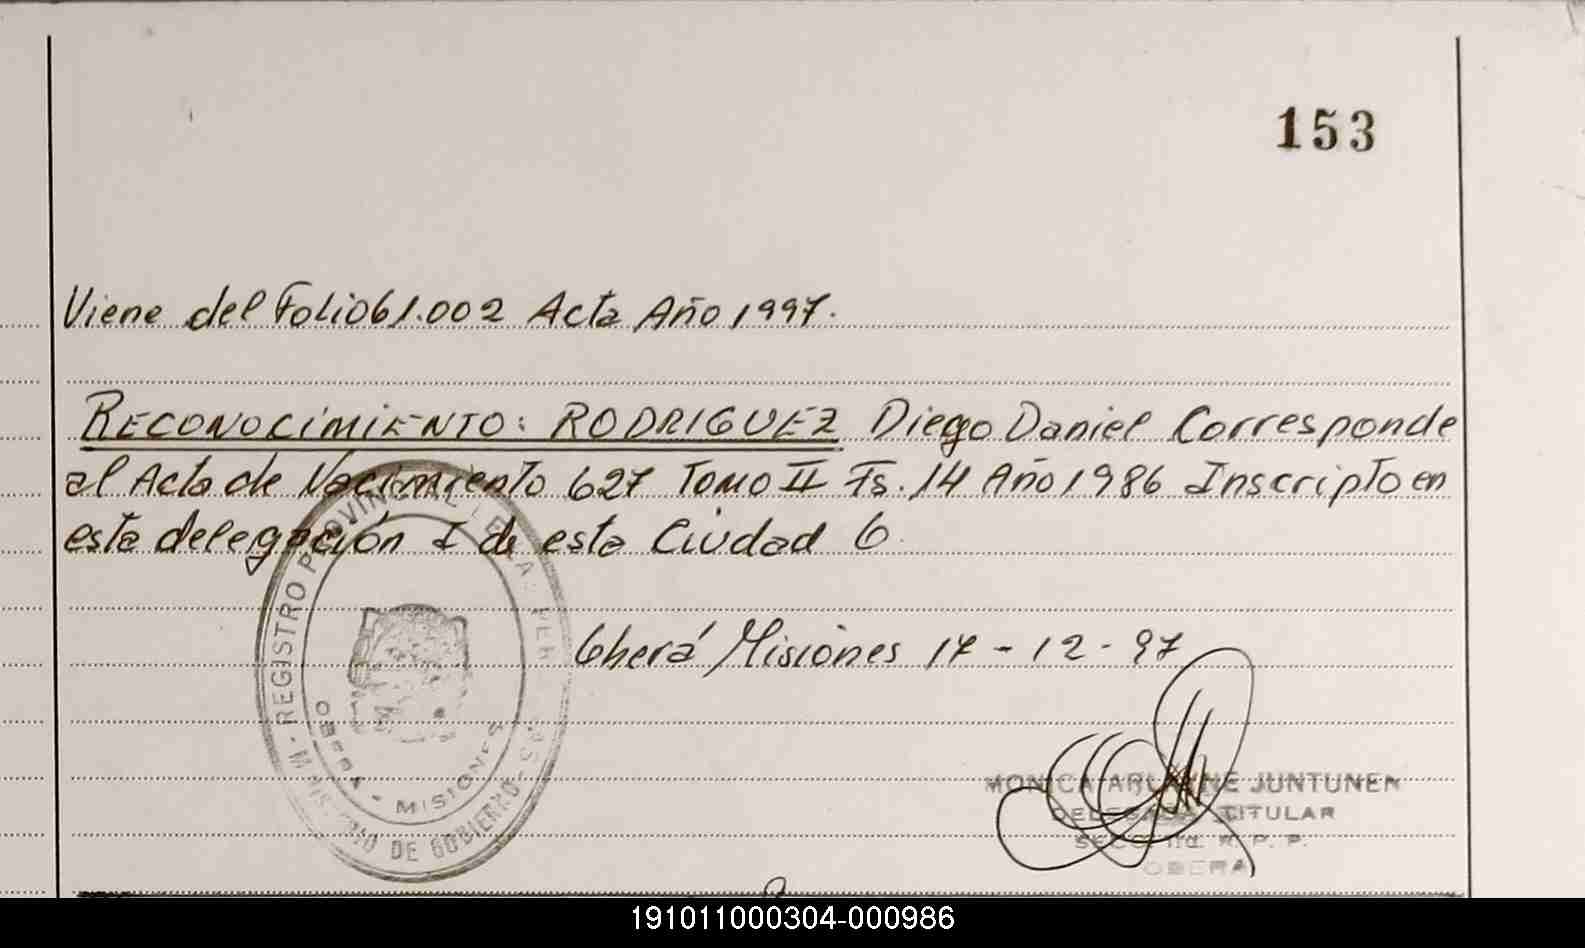 153
Viene del Folio 61.002 Acta Año 1997.
RECONOCIMIENTO: RODRIGUEZ Diego Daniel Corresponde
al Acta de Nacimiento 627 Tomo II Fs. 14 Año 1986 Inscripto en
esta delegación I de esta Ciudad 6
Oberá Misiones 17-12-97
REGISTRO PROVINCIAL DE LAS PERSONAS
OBERA - MISIONES
MINISTERIO DE GOBIERNO
MONICA ARLYNE JUNTUNEN
DELEGADA TITULAR
SECC. R. P. P.
OBERA
191011000304-000986